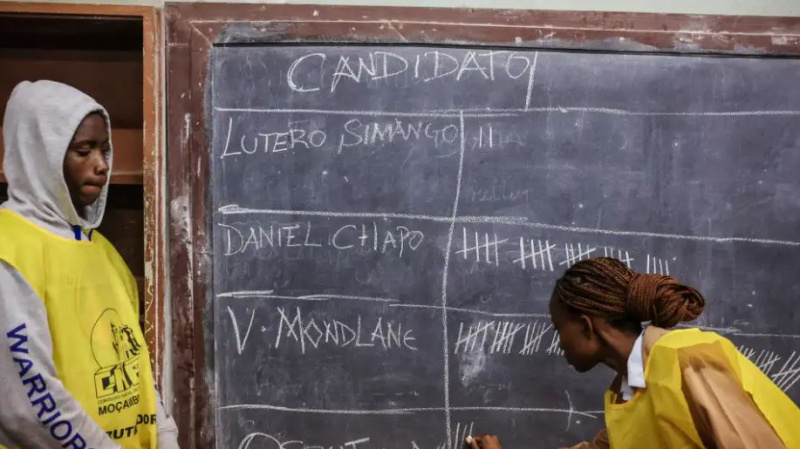 CANDIDATO
LUTERO SIMANGO
DANIEL CHAPO
V. MONDLANE
WARRIORS
MOÇAMBI